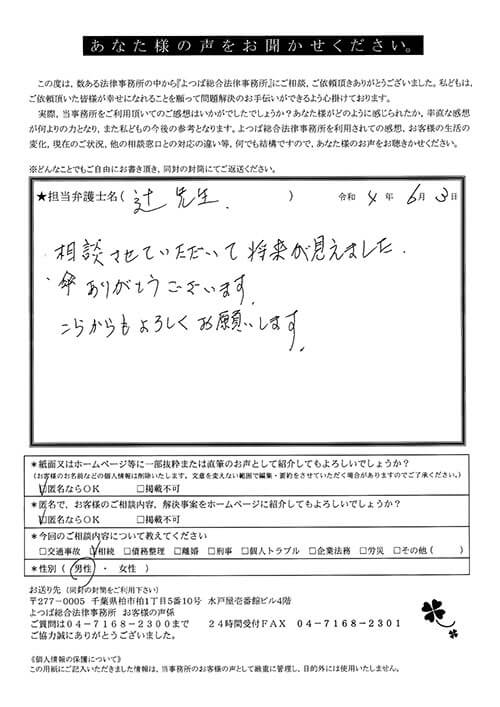 あなた様の声をお聞かせください。
この度は、数ある法律事務所の中から『よつば総合法律事務所』にご相談、ご依頼頂きありがとうございました。私どもは、
ご依頼頂いた皆様が幸せになれることを願って問題解決のお手伝いができるよう心掛けております。
実際、当事務所をご利用頂いてのご感想はいかがでしたでしょうか？あなた様がどのように感じられたか、率直な感想
が何よりの力となり、また私どもの今後の参考となります。よつば総合法律事務所を利用されての感想、お客様の生活の
変化、現在のご状況、他の相談窓口との対応の違い等、何でも結構ですので、あなた様のお声をお聴きかせください。
※どんなことでもご自由にお書き頂き、同封の封筒にてご返送ください。
★担当弁護士名( 辻 先生. ) 令和 4 年 6月 3日
相談させていただいて将来が見えました.
ありがとうございます.
こらからもよろしくお願いします.
＊紙面又はホームページ等に一部抜粋または直筆のお声として紹介してもよろしいでしょうか？
(お客様のお名前などの個人情報は削除いたします。文意を変えない範囲で編集・要約をさせていただく場合がありますのでご了承ください。)
☑匿名ならOK □掲載不可
＊匿名で、お客様のご相談内容、解決事案をホームページに紹介してもよろしいでしょうか？
☑匿名ならOK □掲載不可
＊今回のご相談内容について教えてください
□交通事故 ☑相続 □債務整理 □離婚 □刑事 □個人トラブル □企業法務 □労災 □その他( )
＊性別( 男性 ・ 女性 )
お送り先 (同封の封筒をご利用下さい)
〒277-0005 千葉県柏市柏1丁目5番10号 水戸屋壱番館ビル4階
よつば総合法律事務所 お客様の声係
ご質問は04-7168-2300まで 24時間受付FAX 04-7168-2301
ご協力誠にありがとうございました。
《個人情報の保護について》
この用紙にご記入いただきました情報は、当事務所のお客様の声として厳重に管理し、目的外には使用いたしません。